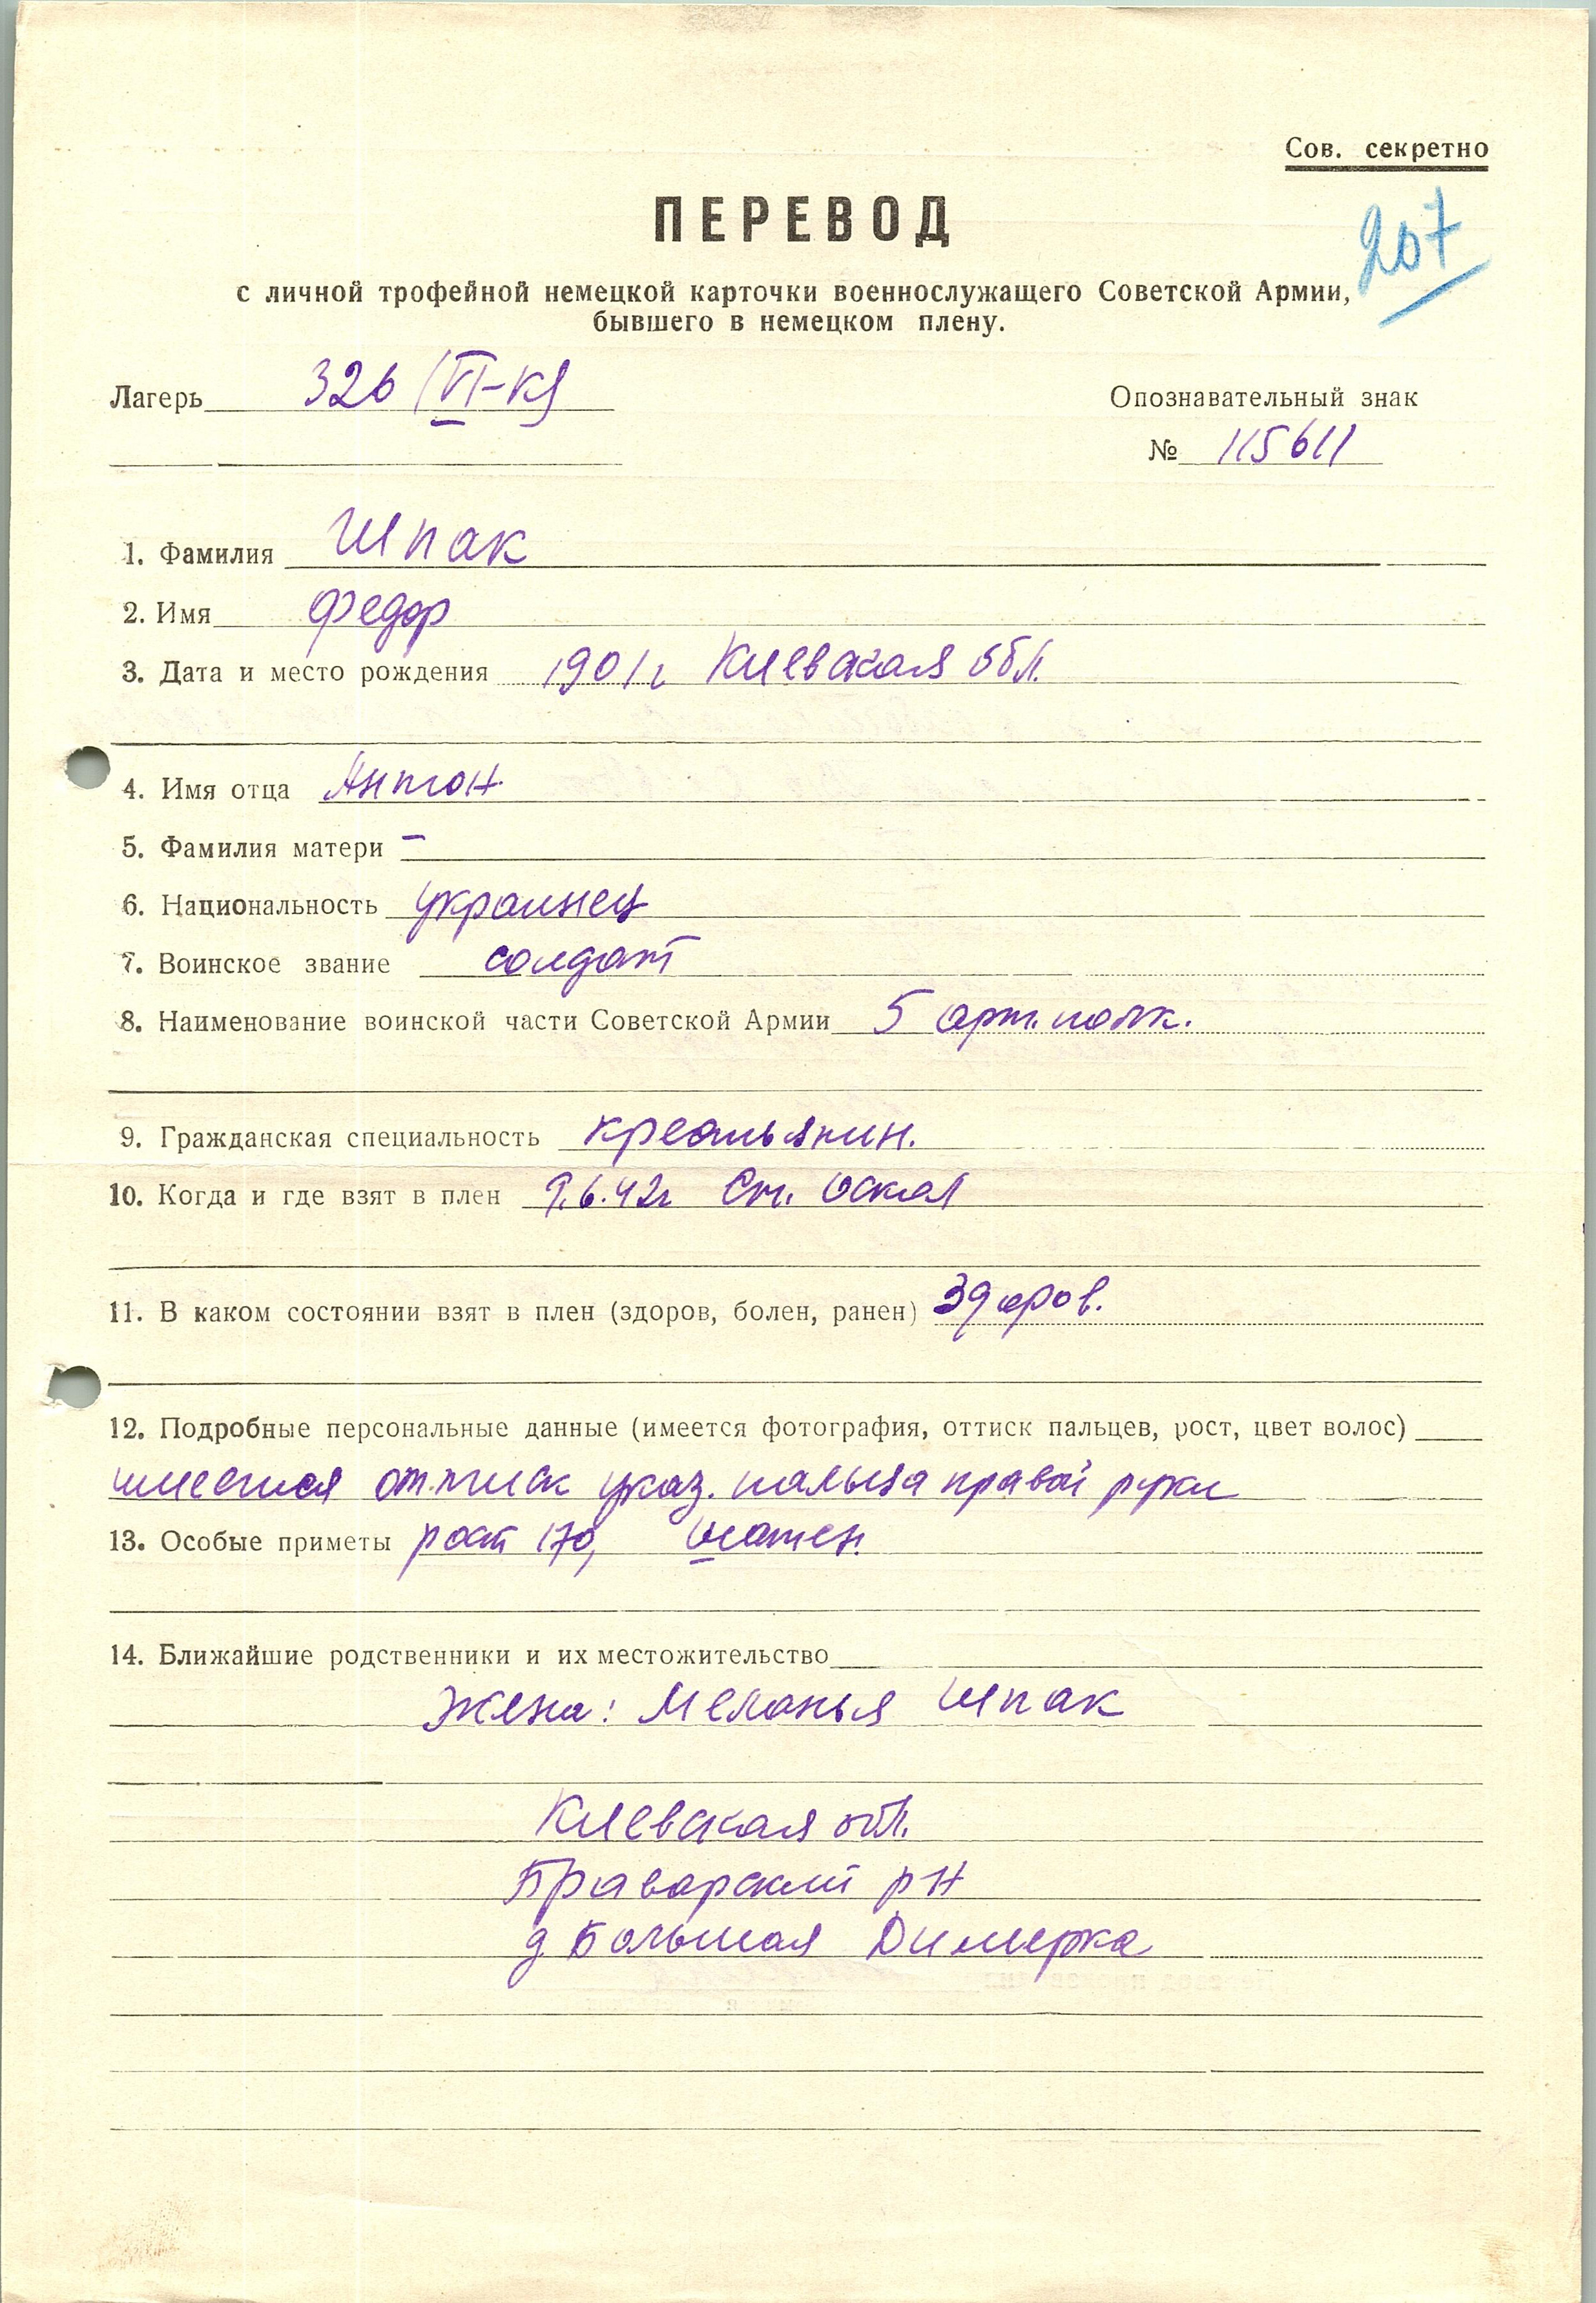 Сов. секретно
ПЕРЕВОД
207
с личной трофейной немецкой карточки военнослужащего Советской Армии,
бывшего в немецком плену.
Лагерь 326 (VI-К)
Опознавательный знак
№ 115611
1. Фамилия Шпак
2. Имя Федор
3. Дата и место рождения 1901г Киевская обл.
4. Имя отца Антон
5. Фамилия матери –
6. Национальность украинец
7. Воинское звание солдат
8. Наименование воинской части Советской Армии 5 арт. полк.
9. Гражданская специальность крестьянин.
10. Когда и где взят в плен 9.6.42г Ст. Оскол
11. В каком состоянии взят в плен (здоров, болен, ранен) Здоров.
12. Подробные персональные данные (имеется фотография, оттиск пальцев, рост, цвет волос)
имеется оттиск указ. пальца правой руки
13. Особые приметы рост 170, шатен.
14. Ближайшие родственники и их местожительство
Жена: Меланья Шпак
Киевская обл.
Браварский р-н
д Большая Димерка